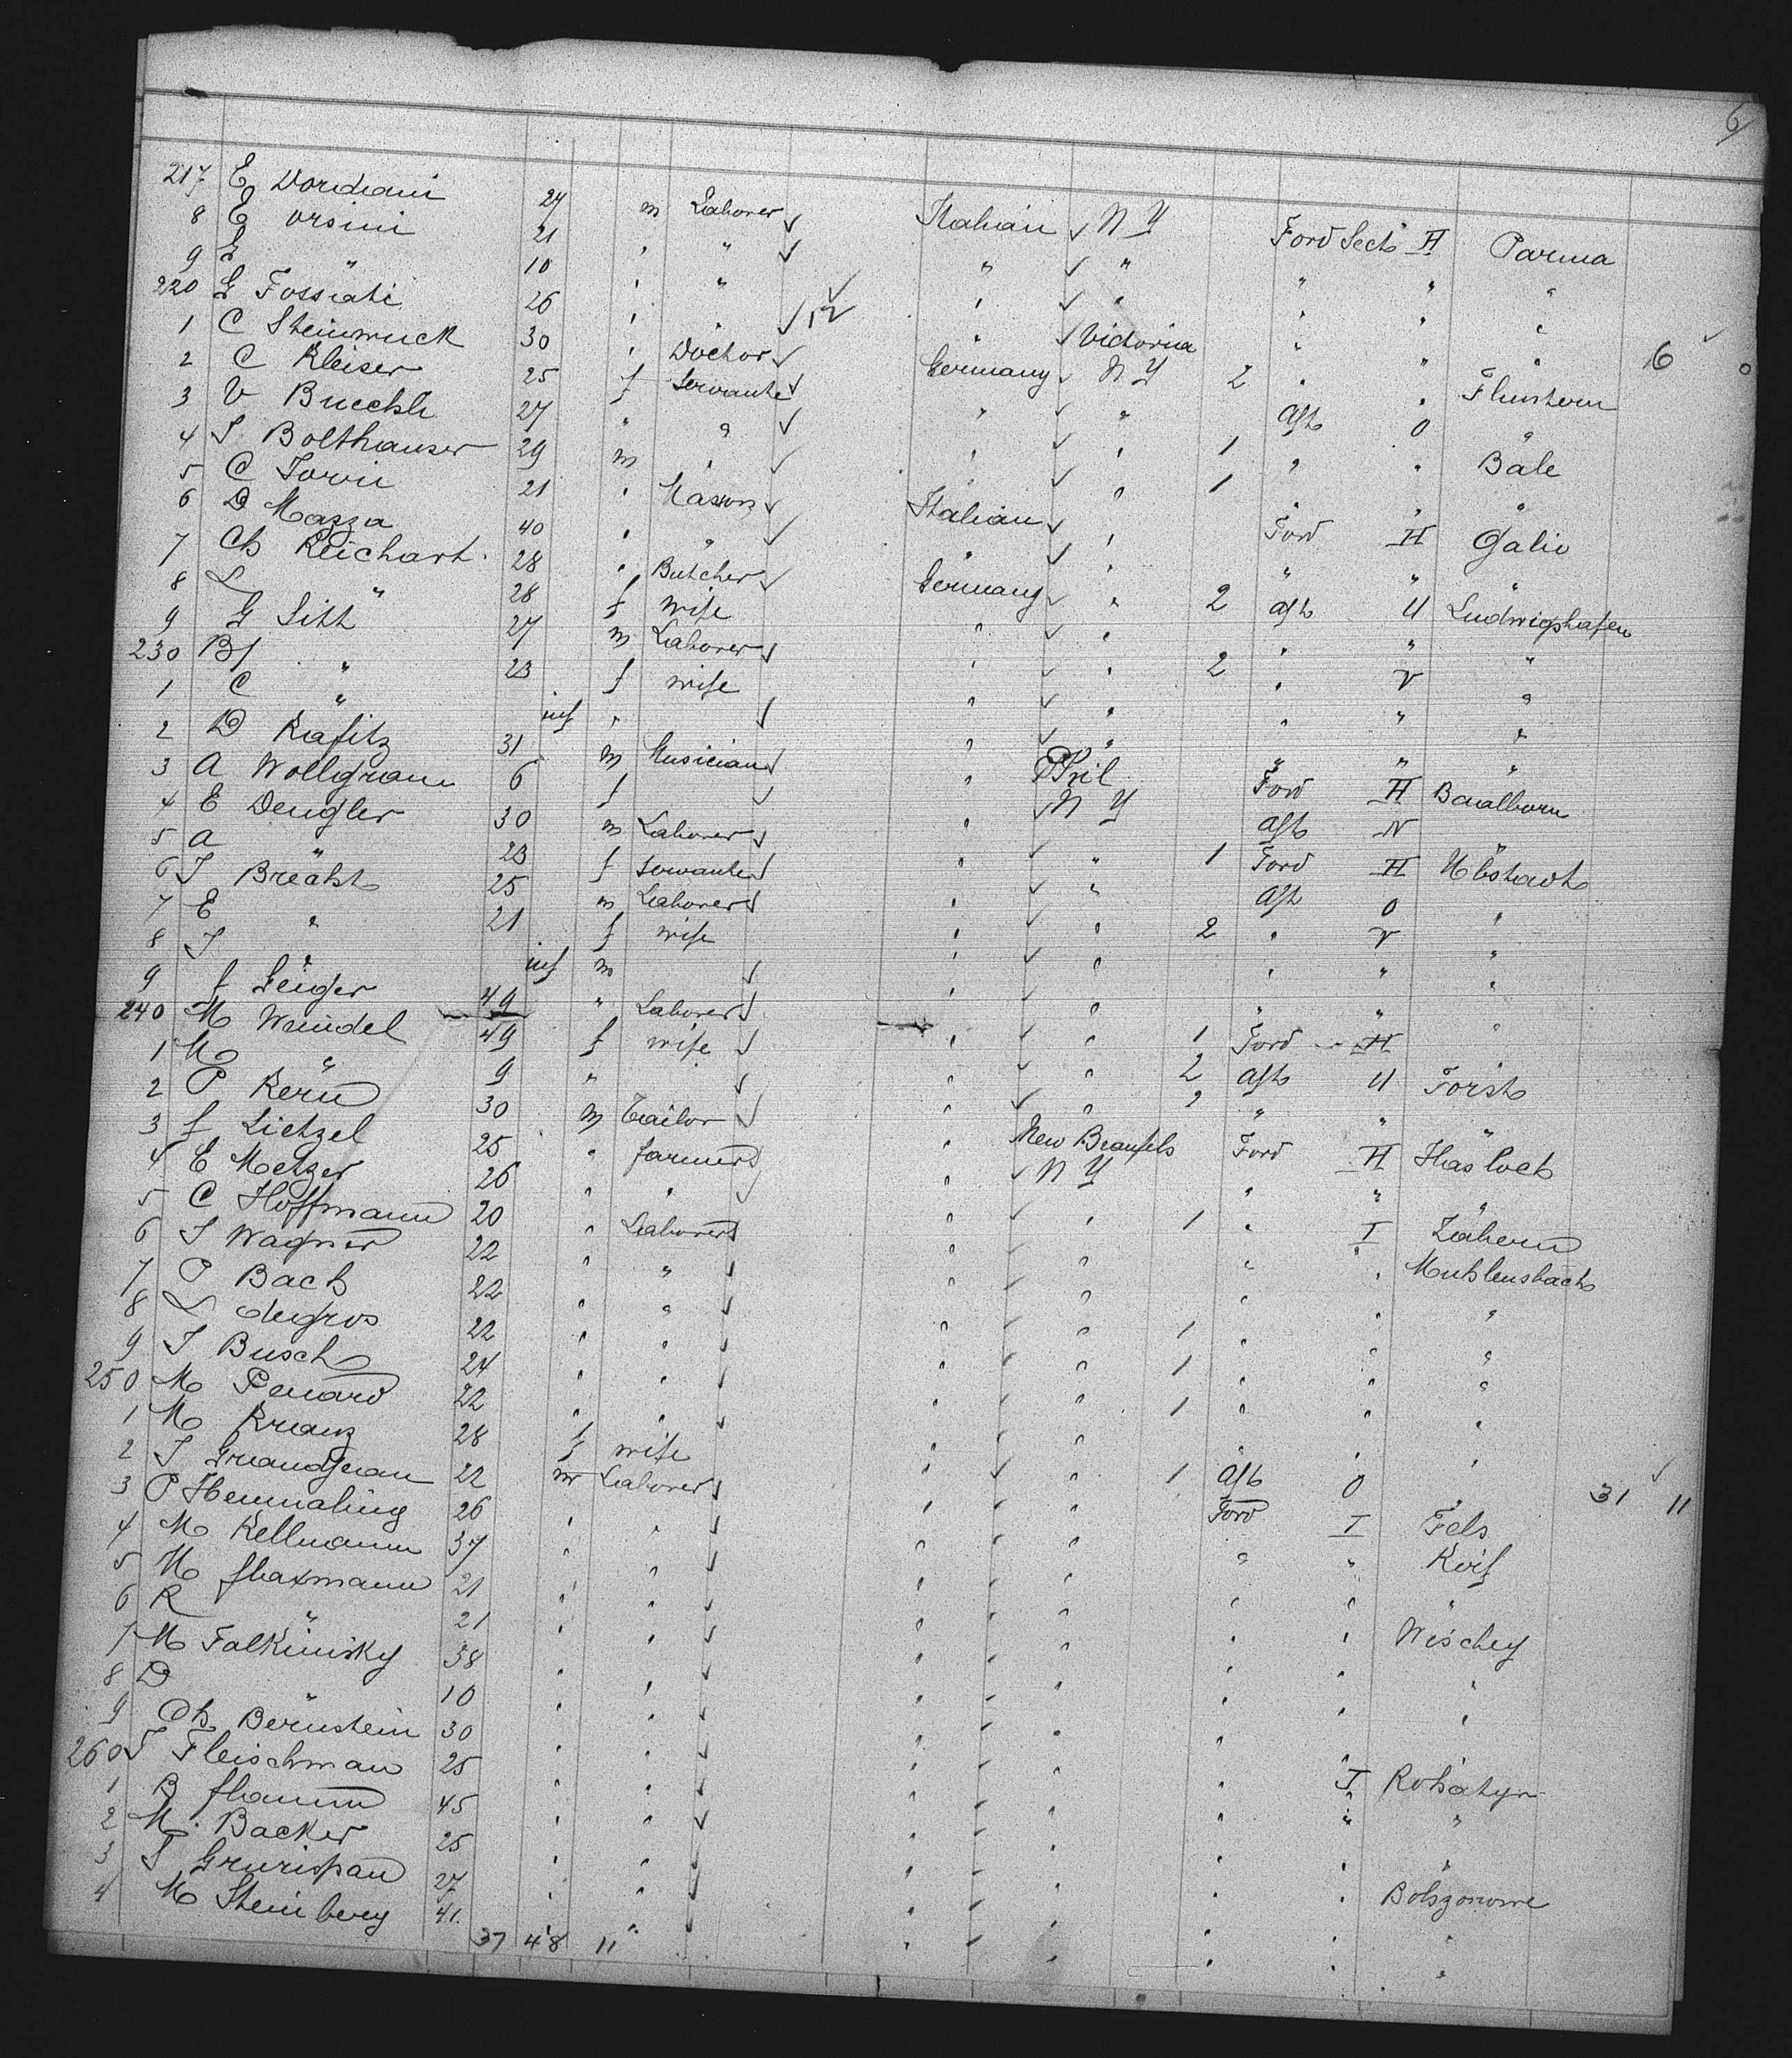 6
217 E Dordiani 24 m Laborer Italian N Y Ford Sect H Parma
8 E Orsini 21 " " " " " " "
9 E " 10 " " " " " " "
220 G Fossati 26 " " 12 " Victoria " " " 6 0
1 C Steinmuck 30 " Doctor Germany N Y 2 " " Fluntern
2 C Kleiser 25 f Servante " " Aft O "
3 V Buechli 27 " " " " 1 " " Bale
4 S Bolthauser 29 m " " " 1 " " "
5 C Torri 21 " Mason Italian " Ford H Galio
6 D Mazza 40 " " " " " " "
7 Ch Reichart 28 " Butcher Germany " 2 Aft U Ludwigshafen
8 L " 28 f wife " " " " "
9 G Sitt 27 m Laborer " " 2 " V "
230 B " 23 f wife " " " " "
1 C " inf " " " " " "
2 D Kafitz 31 m Musician " Phil Ford H Baalborn
3 A Wollgram 6 f " N Y Aft N "
4 E Dengler 30 m Laborer " " 1 Ford H Ubstadt
5 A " 23 f Servante " " Aft O "
6 J Brecht 25 m Laborer " " 2 " V "
7 E " 21 f wife " " " " "
8 J " inf m " " " " "
9 f Geiger 49 " Laborer " " 1 Ford H
240 M Weindel 49 f wife " " 2 Aft U Forst
1 M " 9 " " " 2 " " "
2 P Kern 30 m Tailor " New Braunfels Ford H Hasloch
3 f Lietzel 25 " farmer " N Y " " "
4 E Metzer 26 " " " " 1 " I Zabern
5 C Hoffmann 20 " Laborer " " " " Muhlensbach
6 J Wagner 22 " " " " " " "
7 P Bach 22 " " " " 1 " " "
8 L degros 22 " " " " 1 " " "
9 J Busch 24 " " " " 1 " " "
250 M Penard 22 " " " " " " "
1 M Kranz 28 f wife " " 1 Aft O " 31 11
2 J Grandjean 22 m Laborer " " Ford I Fels
3 P Hemmaling 26 " " " " " " Koif
4 M Kellmann 37 " " " " " " "
5 M flaxmann 21 " " " " " " Wischey
6 R " 21 " " " " " " "
7 M Falkinisky 38 " " " " " " "
8 D " 10 " " " " "
9 Ch Bernstein 30 " " " " " I Rohatyn
260 J Fleischman 25 " " " " " " "
1 B flamm 45 " " " " " " "
2 M. Backer 25 " " " " " "
3 S Grurispan 27 " " " " " "
4 M Steinberg 41. " " " " " "
37 48 11